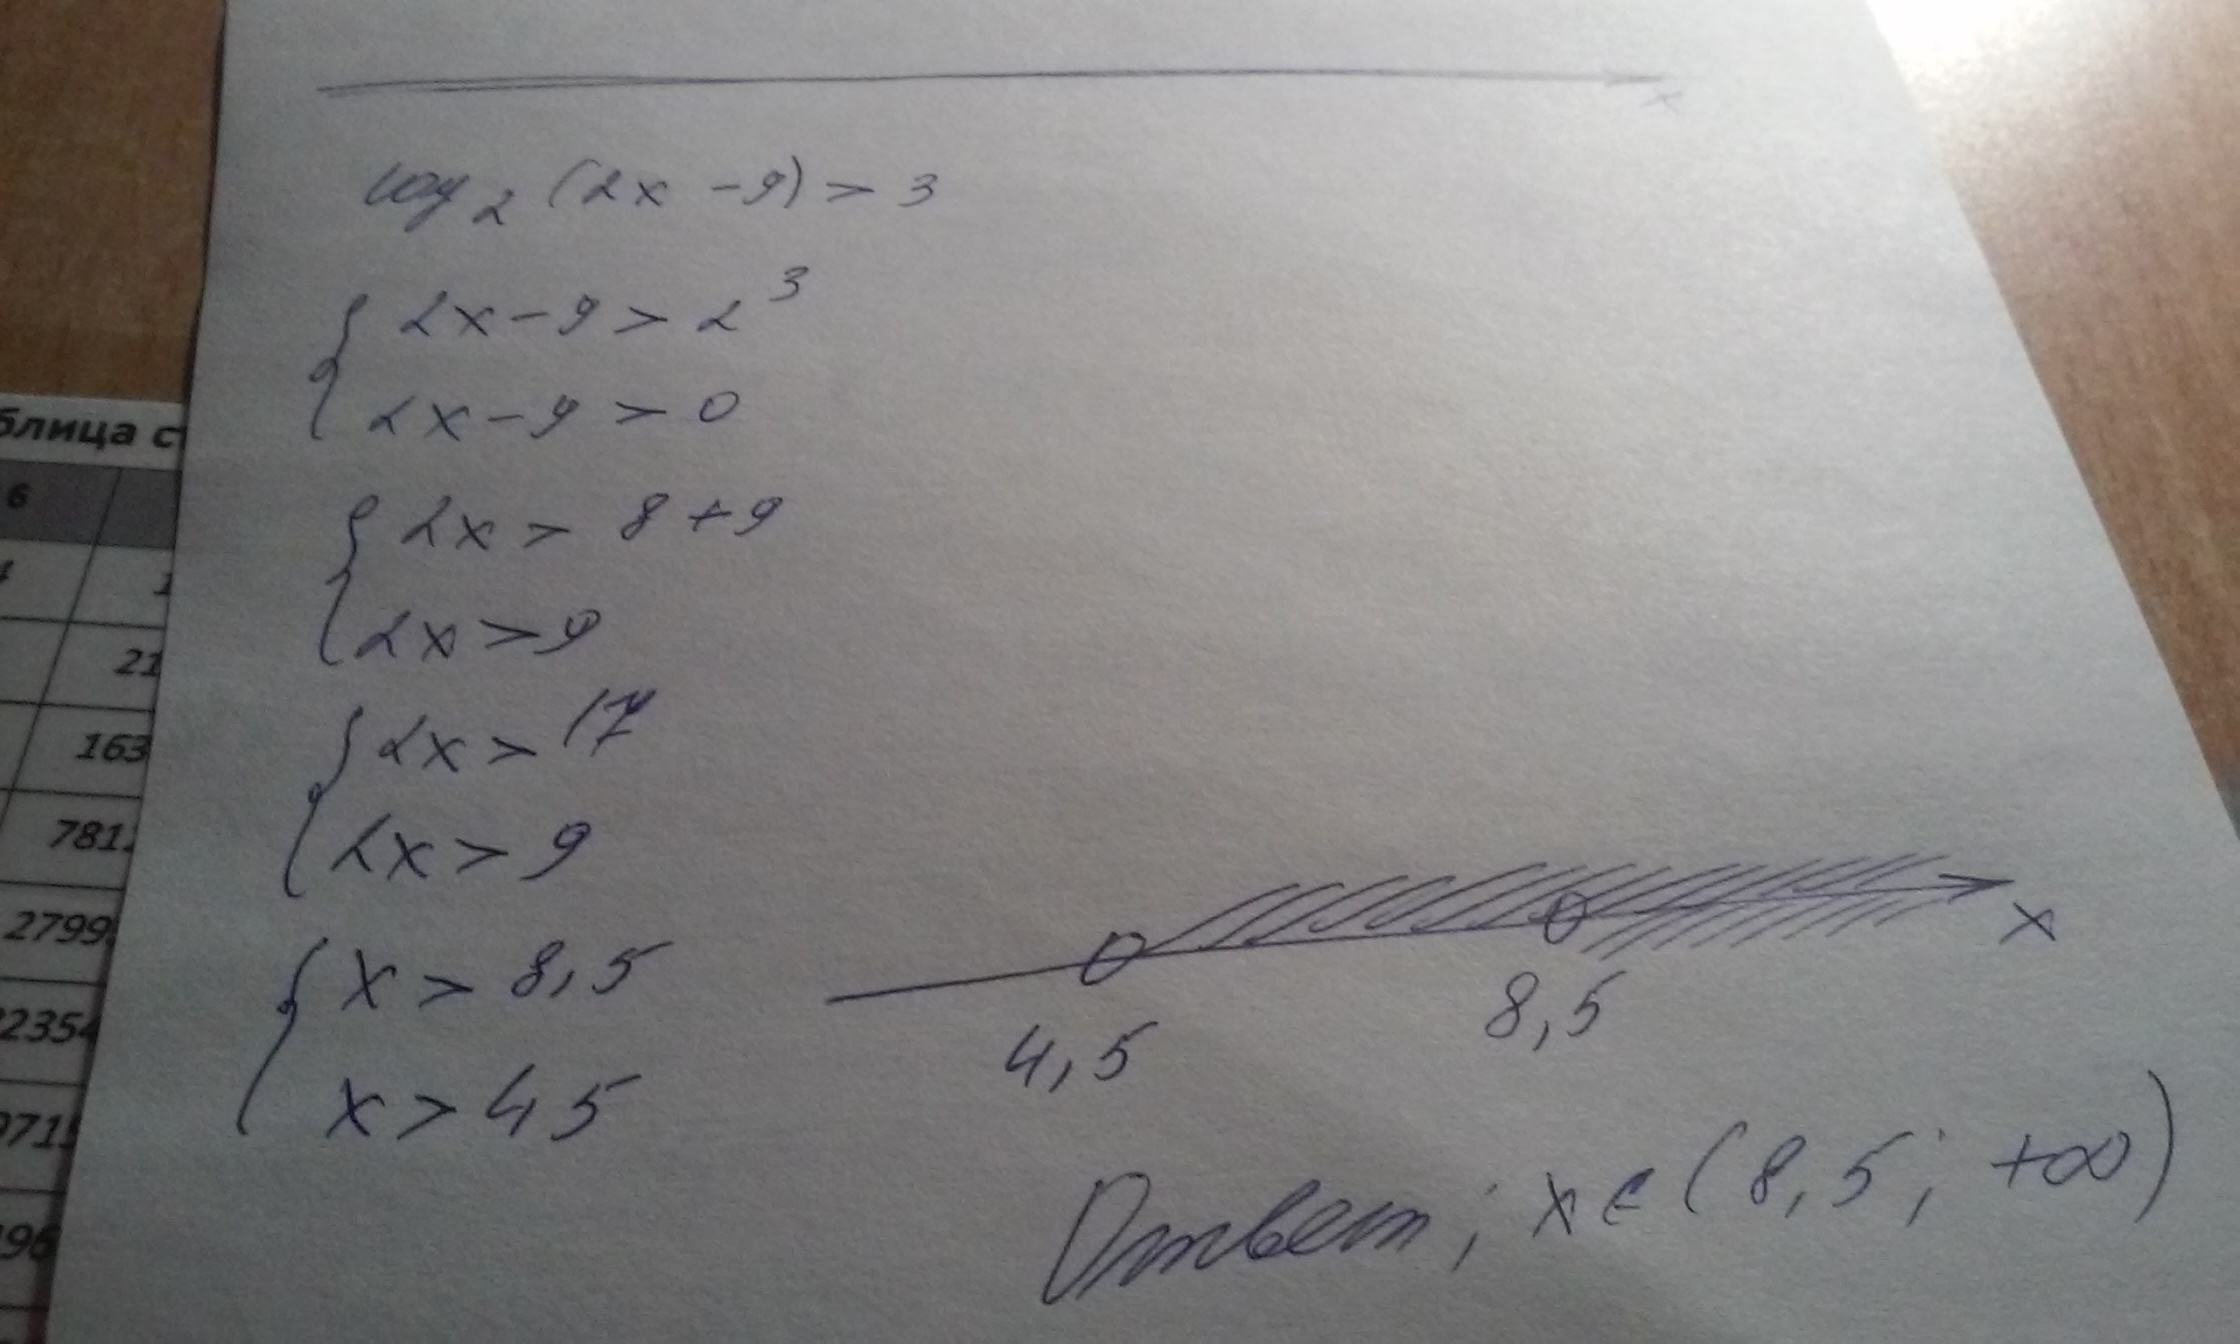 x
log₂ (2x - 9) > 3
2x - 9 > 2³
2x - 9 > 0
2x > 8 + 9
2x > 9
2x > 17
2x > 9
x > 8,5
x > 4 5
4,5
8,5
x
Ответ; x ∈ (8,5; +∞)
блица с
6
1
21
163
781
2799
2354
971
96